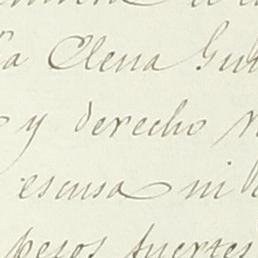 Elena
y derecho
escusa ni
pesos fuertes